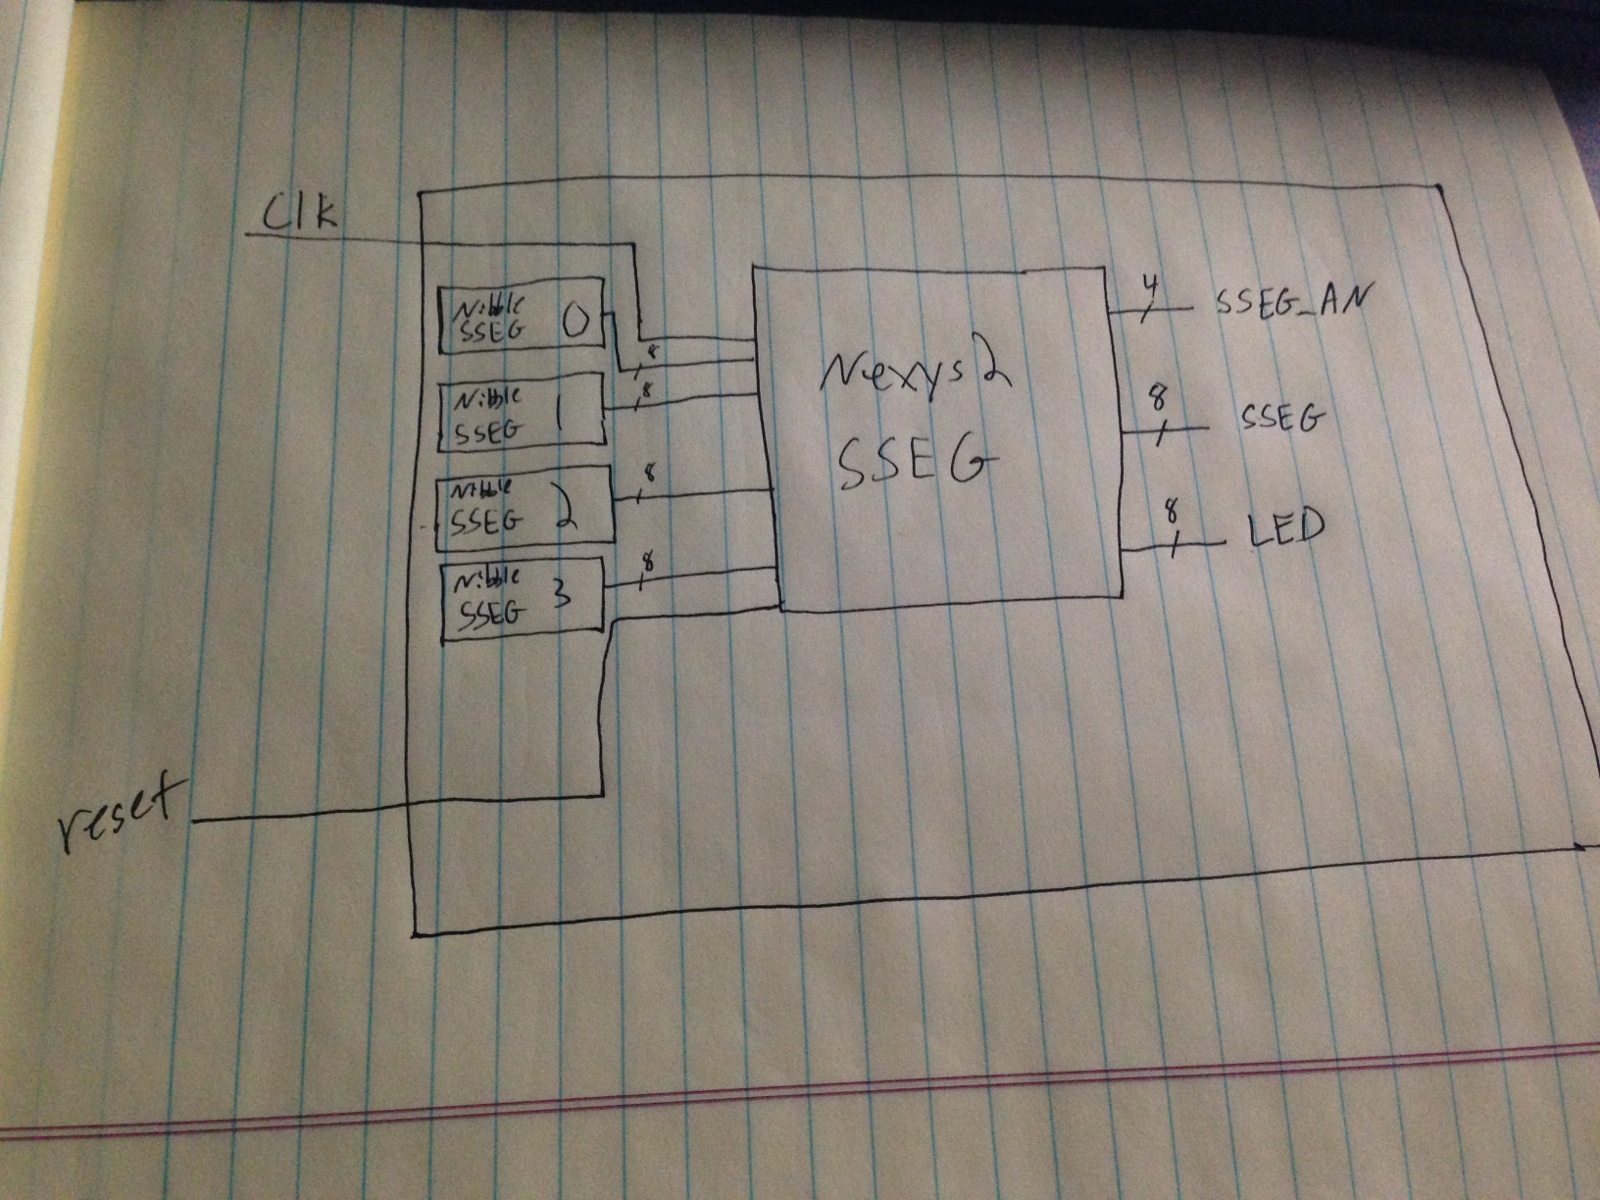 Clk
Nibble
SSEG 0
8
Nibble
SSEG 1
8
Nibble
SSEG 2
8
Nibble
SSEG 3
8
Nexys2
SSEG
4 SSEG_AN
8 SSEG
8 LED
reset